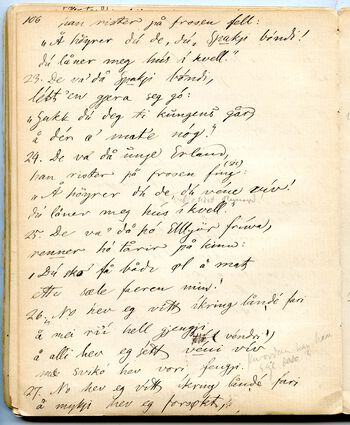 106 han rister på frosen fell:
"Å höyrer du de, du, Spakji bóndi!
du låner meg hus i kvell."
23. De va' då Spakji bóndi,
lett 'en gjera seg gó:
"Gakk du deg ti kungens går,
å der æ mat'e nóg."
24. De va' då ungje Erland,
han rister på frosen
"Å höyrer du de, du væne viv!
du låner meg hus i kvell"
25. De va' då hó frúva,
renner hó tårir på kinn:
"Du ska' få både öl å mat
ette sæle faeren min!
26. No hev eg vitt ikring landé fari
å mei rii hell gjengji
å alli hev eg sétt veni viv
svikó hev vori fengji.
27. No hev eg vitt ikring landé fari
å mykji hev eg forsökt,